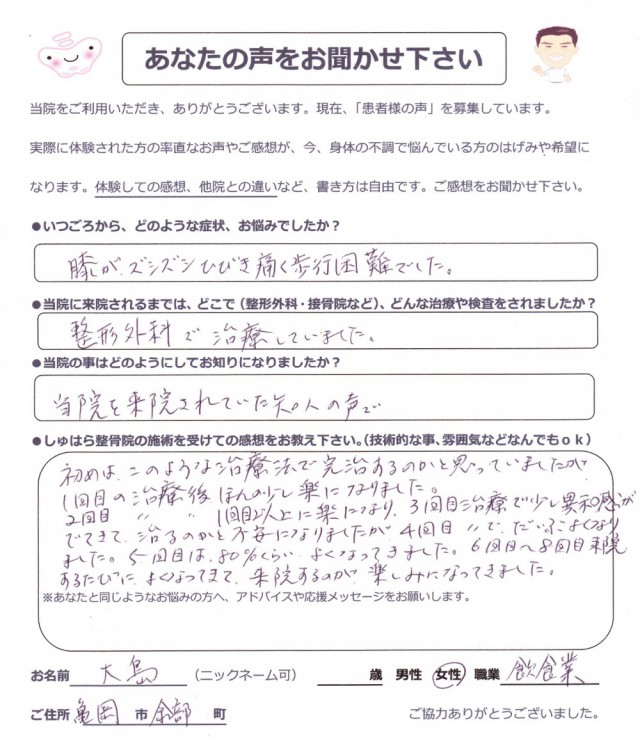 あなたの声をお聞かせ下さい
当院をご利用いただき、ありがとうございます。現在、「患者様の声」を募集しています。
実際に体験された方の率直なお声やご感想が、今、身体の不調で悩んでいる方のはげみや希望に
なります。体験しての感想、他院との違いなど、書き方は自由です。ご感想をお聞かせ下さい。
●いつごろから、どのような症状、お悩みでしたか？
膝がズシズシひびき痛く歩行困難でした。
●当院に来院されるまでは、どこで（整形外科・接骨院など）、どんな治療や検査をされましたか？
整形外科で治療していました。
●当院の事はどのようにしてお知りになりましたか？
当院を来院されていた知人の声で
●しゅはら整骨院の施術を受けての感想をお教え下さい。（技術的な事、雰囲気などなんでもｏｋ）
初めは、このような治療法で完治するのかと思っていましたが
1回目の治療後ほんの少し楽になりました。
2回目 〃 〃 1回目以上に楽になり、3回目治療で少し異和感が
でてきて、治るのかと不安になりましたが 4回目 〃 で、だいぶよくなり
ました。5回目は、80%くらい よくなってきました。6回目〜8回目来院
するたびに よくなってきて、来院するのが 楽しみになってきました。
※あなたと同じようなお悩みの方へ、アドバイスや応援メッセージをお願いします。
お名前 大島 （ニックネーム可） 歳 男性 女性 職業 飲食業
ご住所 亀岡 市 余部 町 ご協力ありがとうございました。